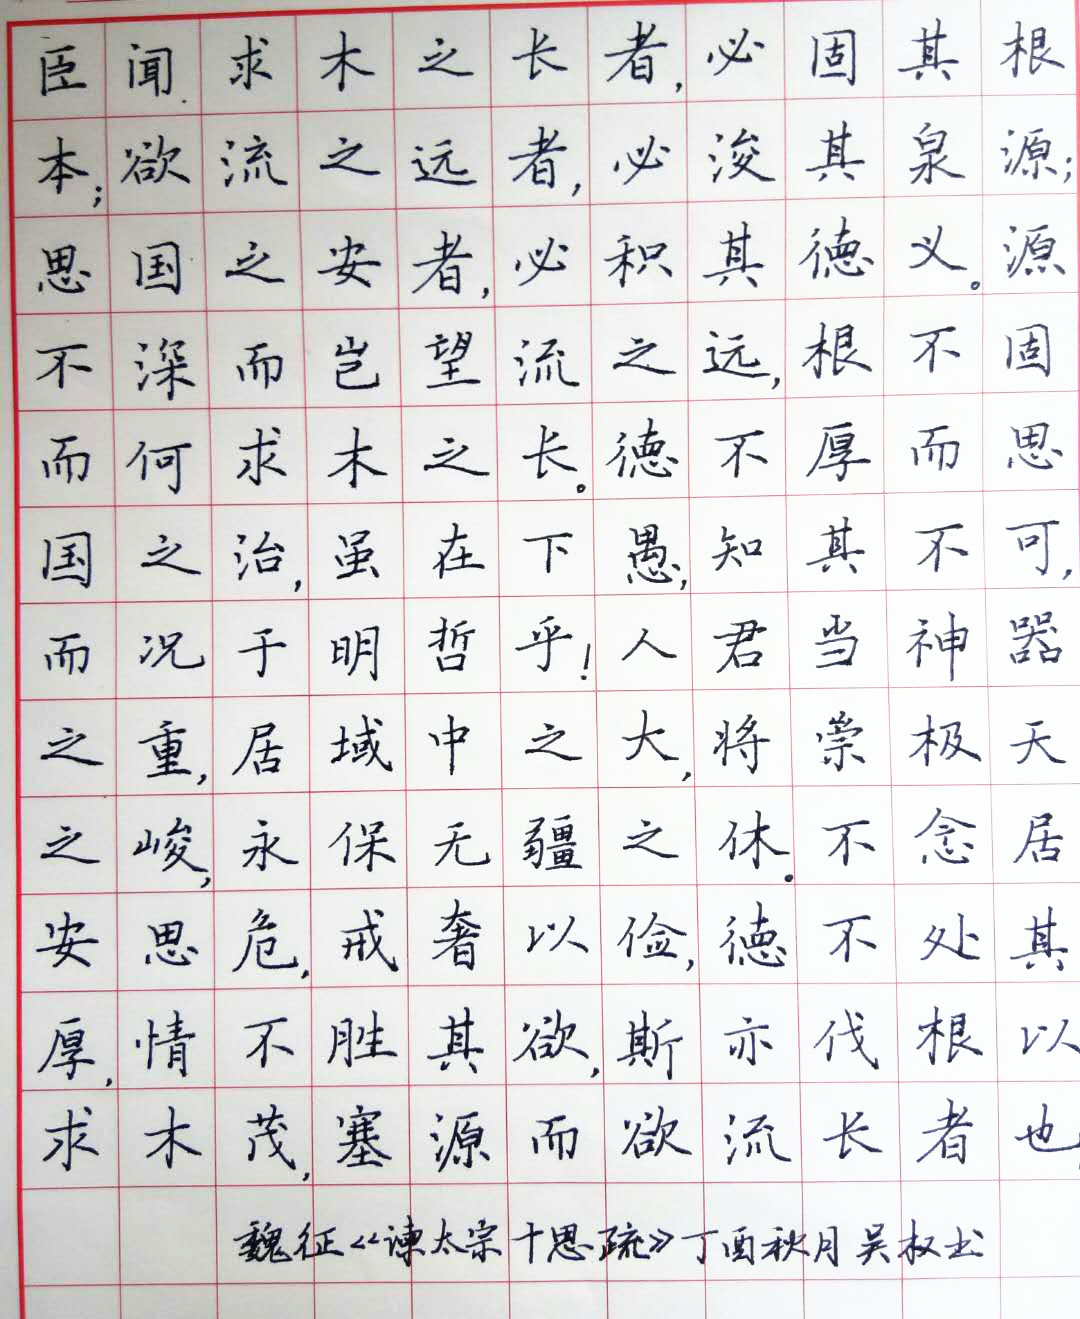 臣闻求木之长者,必固其根
本;欲流之远者,必浚其泉源;
思国之安者,必积其德义。源
不深而岂望流之远,根不固
而何求木之长。德不厚而思
国之治,虽在下愚,知其不可,
而况于明哲乎!人君当神器
之重,居域中之大,将崇极天
之峻,永保无疆之休。不念居
安思危,戒奢以俭,德不处其
厚,情不胜其欲,斯亦伐根以
求木茂,塞源而欲流长者也
魏征《谏太宗十思疏》丁酉秋月吴权书